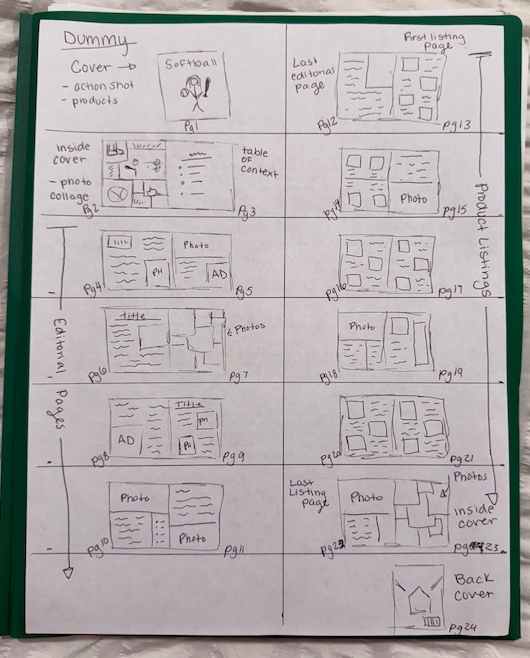 Dummy
Cover →
- action shot
- products
Softball
Pg1
inside
cover
- photo
collage
table
of
context
Pg2
Pg3
Editorial Pages
Photo
PH
AD
Pg4
Pg5
Title
Photos
Pg6
Pg7
AD
Title
PH
PH
Pg8
Pg9
Photo
Photo
Pg10
Pg11
Last
editorial
page
First listing
page
Pg12
Pg13
Product Listings
Photo
Pg14
Pg15
Pg16
Pg17
Photo
Pg18
Pg19
Pg20
Pg21
Last
Listing
page
Photo
Photos
inside
cover
Pg22
23
Back
cover
Pg24